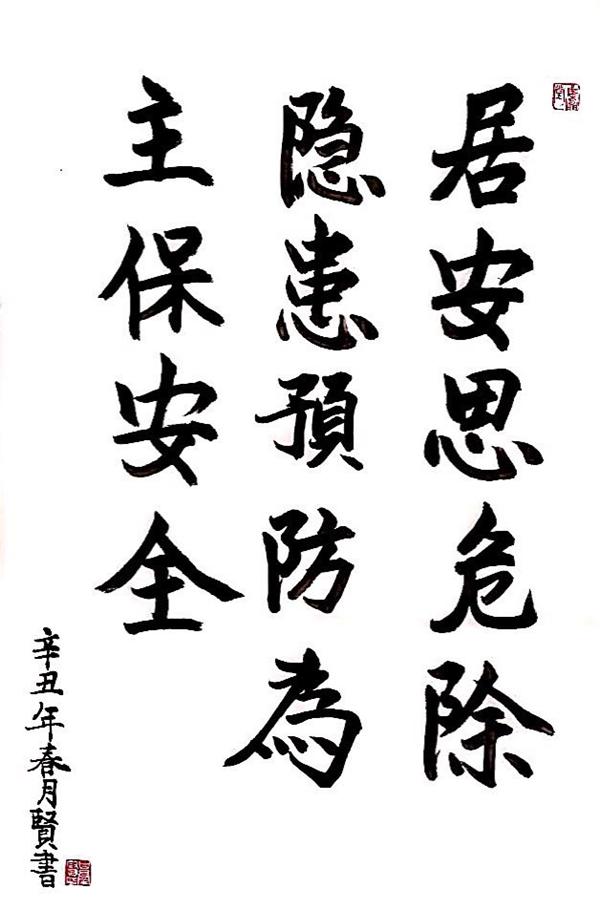 居安思危除
隐患預防為
主保安全
辛丑年春月賢書